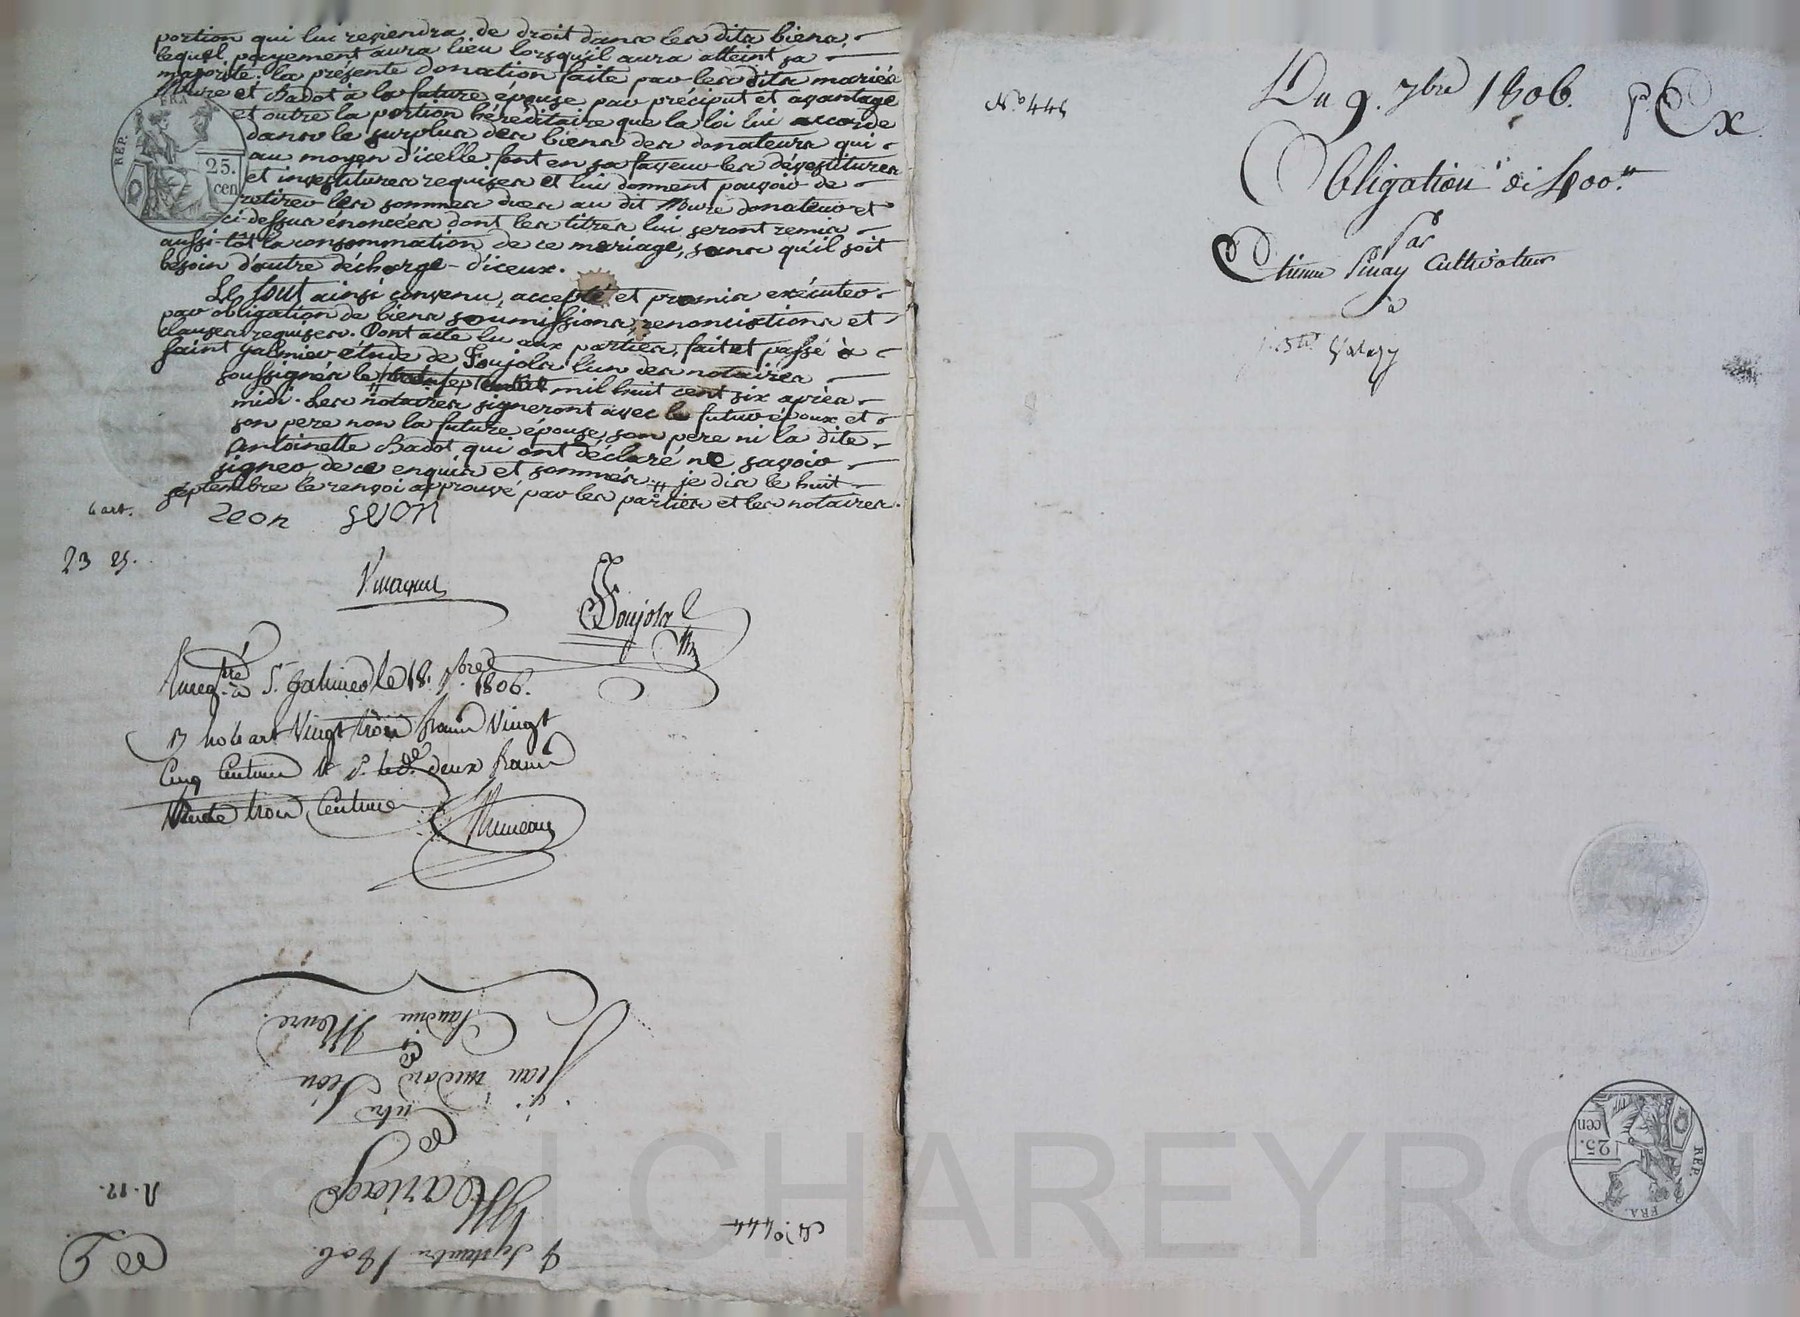 portion qui lui reviendra de droit dans les dits biens,
lequel payement aura lieu lorsqu'il aura atteint sa
majorité. la présente donation faite par les dits mariés
Mure et Badot à la future épouse par préciput et avantage
et outre la portion héréditaire que la loi lui accorde
dans le surplus des biens des donateurs qui
au moyen d'icelle font en sa faveur les dévestitures
et investitures requises et lui donnent pouvoir de
retirer les sommes dues au dit Mure donateur et
ci-dessus énoncées dont les titres lui seront remis
aussi-tôt la consommation de ce mariage, sans qu'il soit
besoin d'autre décharge d'iceux.
REP. FRA
25.
cen
Le tout ainsi convenu, accepté et promis exécuter
par obligation de biens soumissions, renonciations et
clauses requises. Dont acte lu aux parties, fait et passé à
Saint Galmier étude de Foujols l'un des notaires
soussignés le septembre mil huit cent six après
midi. Les notaires signeront avec le futur époux et
son pere non la future épouse, son pere ni la dite
Antoinette Badot qui ont déclaré ne savoir
signer de ce enquis et sommés. je dis le huit
septembre le renvoi approuvé par les parties et les notaires.
6 art.
zeon seon
23 25.
Foujols
Enreg.tré à S.t Galmier le 18. 7.bre 1806.
Vingt trois francs Vingt
Cinq Centimes deux francs
trois Centimes
N.º 444
8 Septembre 1806.
Mariage
Entre
jean Léon
Et
Claudine Mure.
N.º 445
Du 9. 7bre 1806.
P. Ex
Obligation de 400.tt
Par
Etienne Pinay Cultivateur
à
REP. FRA.
25.
cen
CHAREYRON